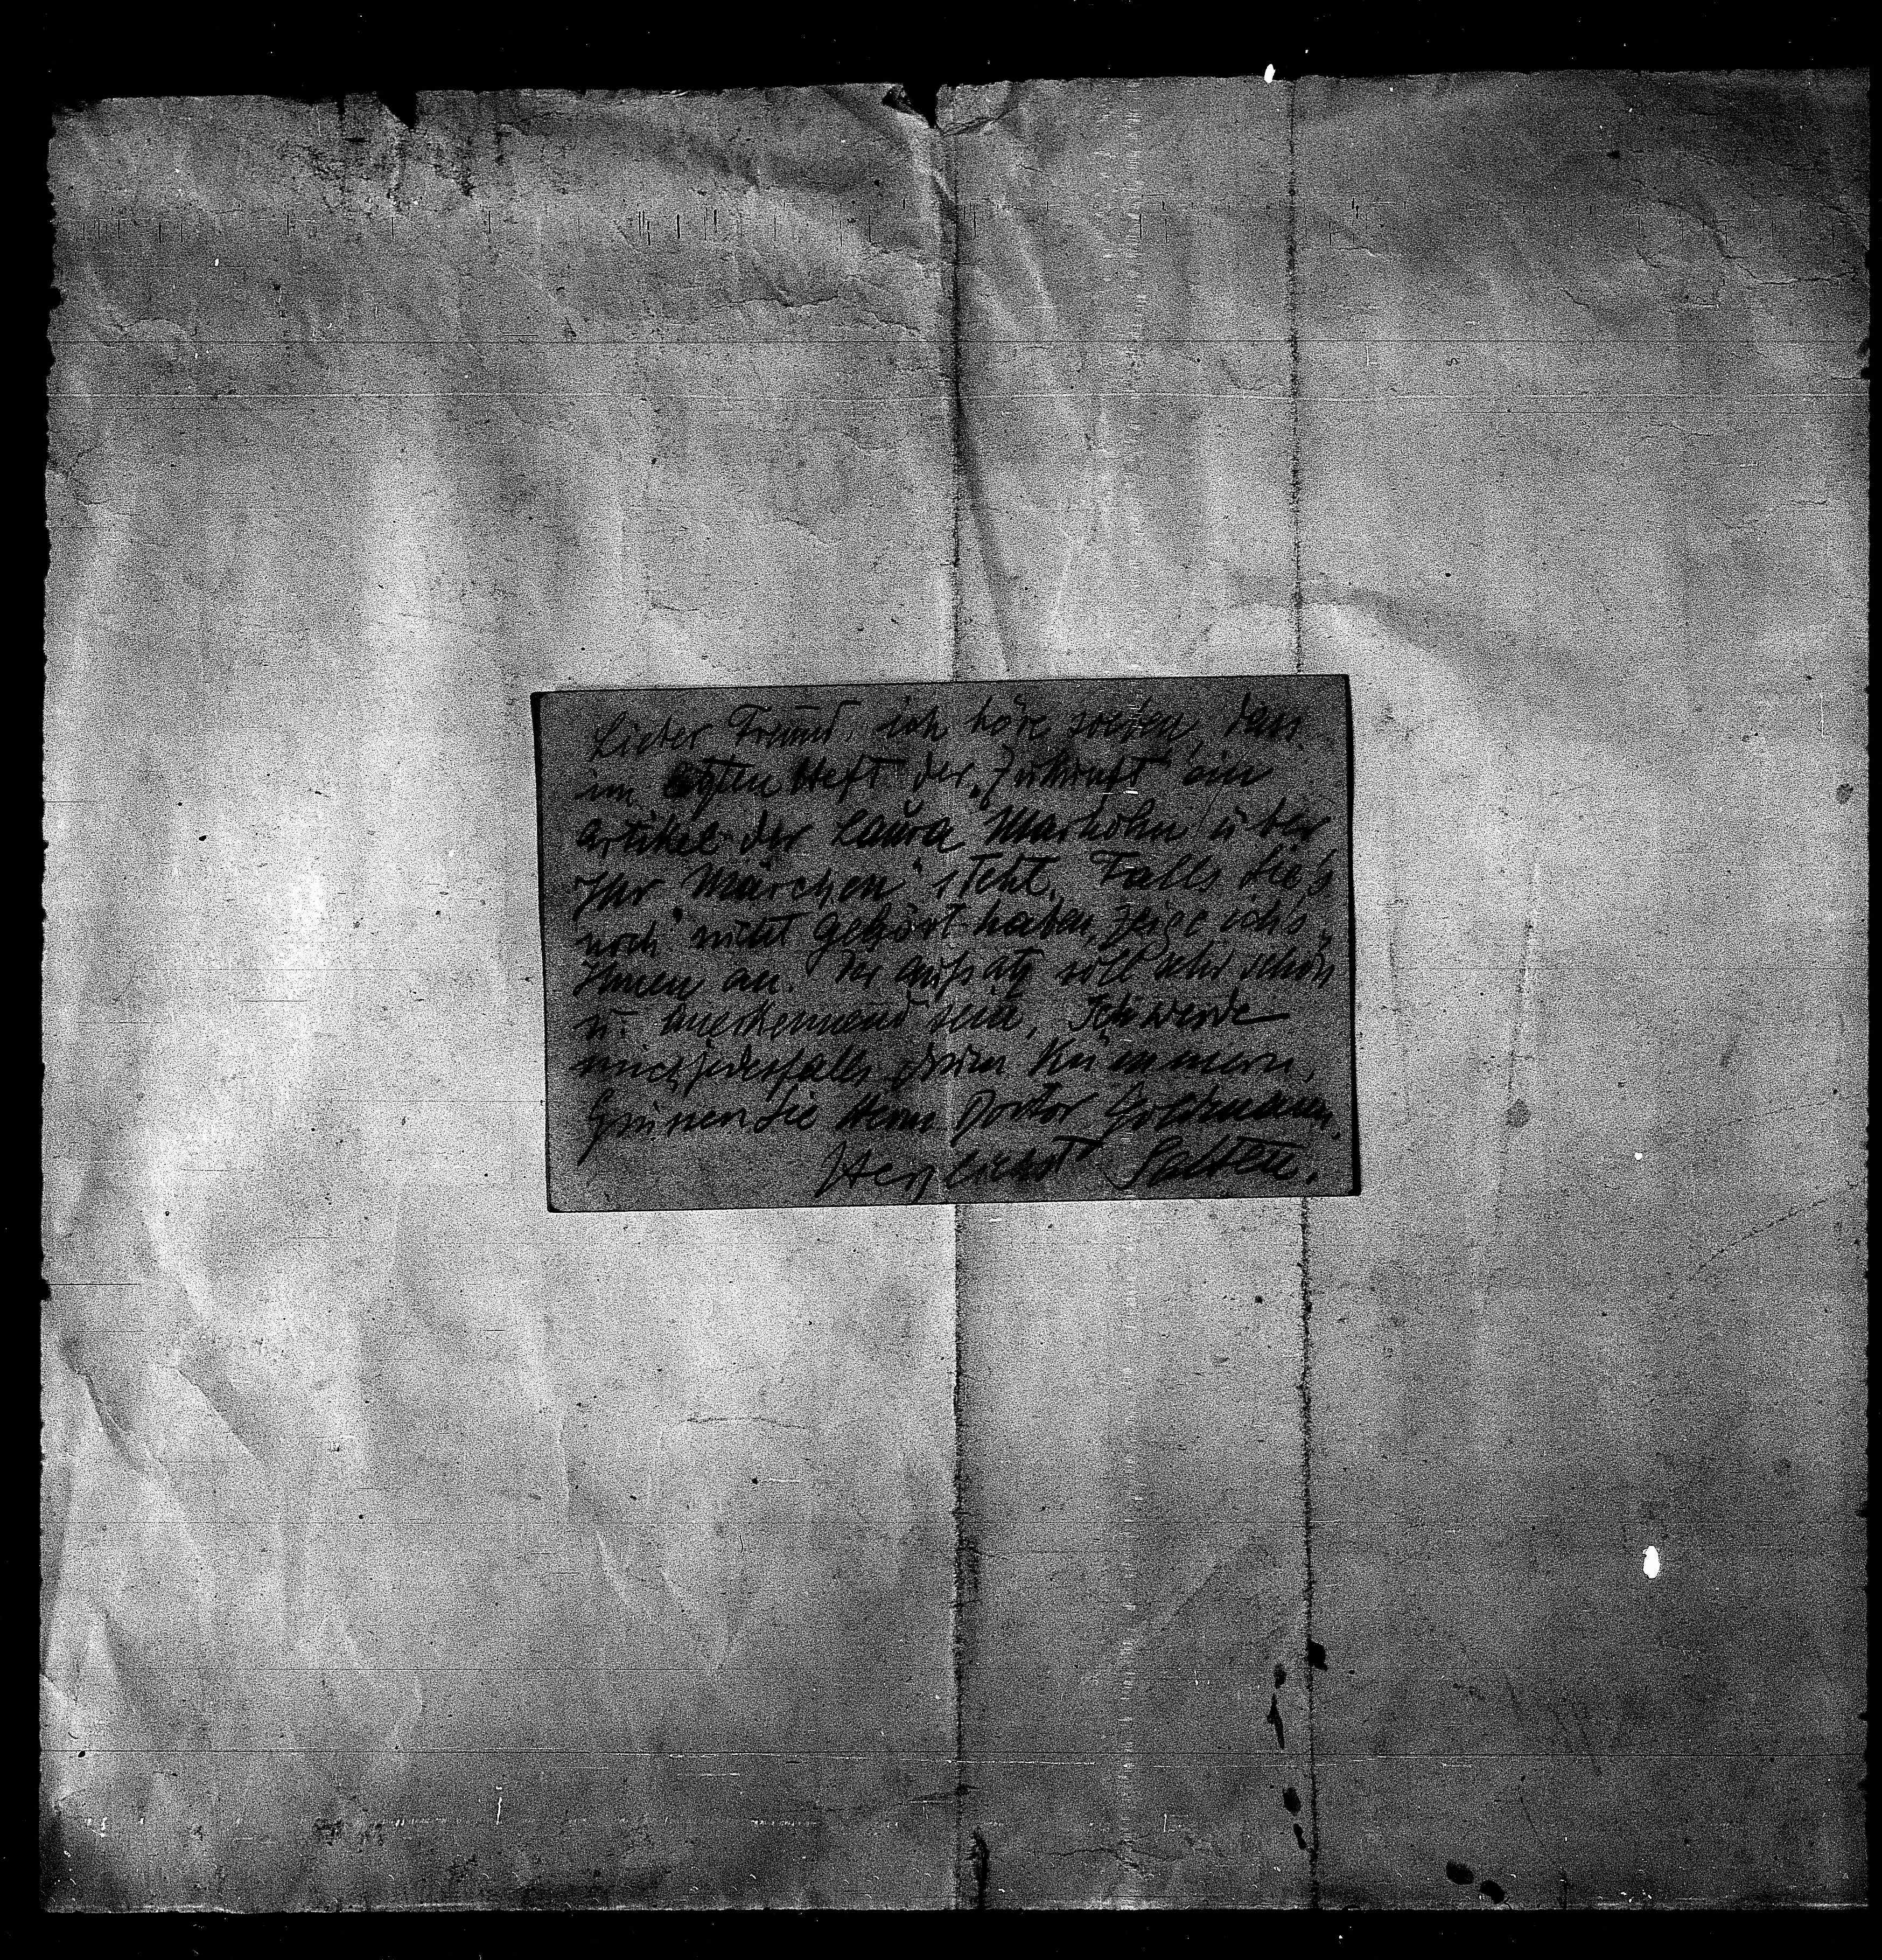 Lieber Freund, ich höre soeben, dass
im letzten Heft der „Zukunft“ ein
Artikel der Laura Marholm über
Ihr „Märchen“ steht. Falls Sie's
noch nicht gehört haben, zeige ich's
Ihnen an. Der Aufsatz soll sehr schön
u. anerkennend sein. Ich werde
mich jedesfalls drum kümmern.
Grüssen Sie Herrn Doctor Goldmann.
Herzlichst Salten.